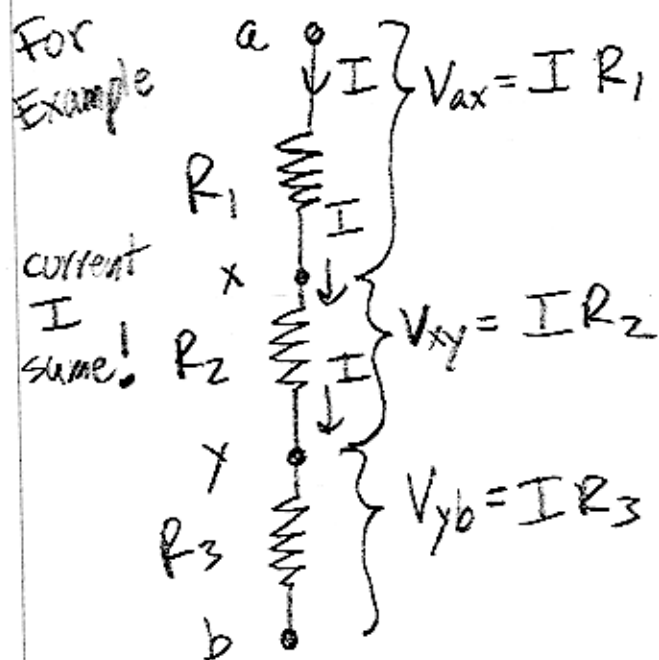 For
Example
a
I
V_ax = I R_1
R_1
I
current
I
same!
x
V_xy = I R_2
R_2
I
y
V_yb = I R_3
R_3
b